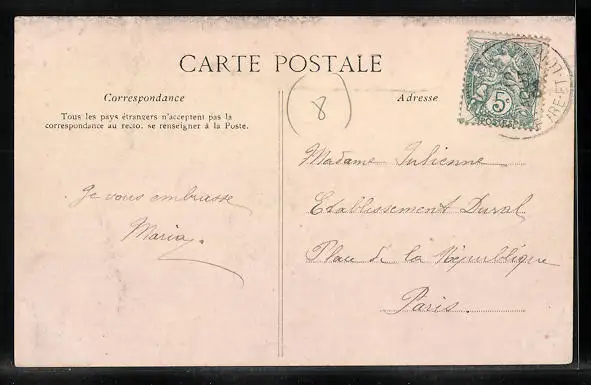 CARTE POSTALE
Correspondance
Tous les pays étrangers n'acceptent pas la
correspondance au recto, se renseigner à la Poste.
Je vous embrasse
Maria.
8
Adresse
5c
POSTES
Madame Julienne
Etablissement Duval
Place de la République
Paris.